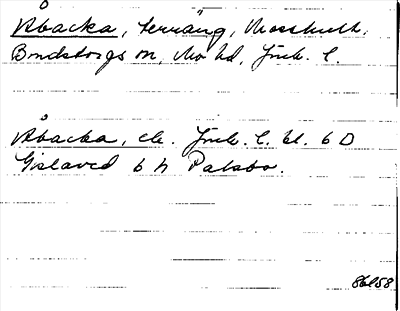 Åbacka, terräng, Mosshult,
Bondstorps sn, Mo hd, Jönk. l.
Åbacka, ek. Jönk. l. bl. 6 D
Gislaved 6 h Palsbo.
86258